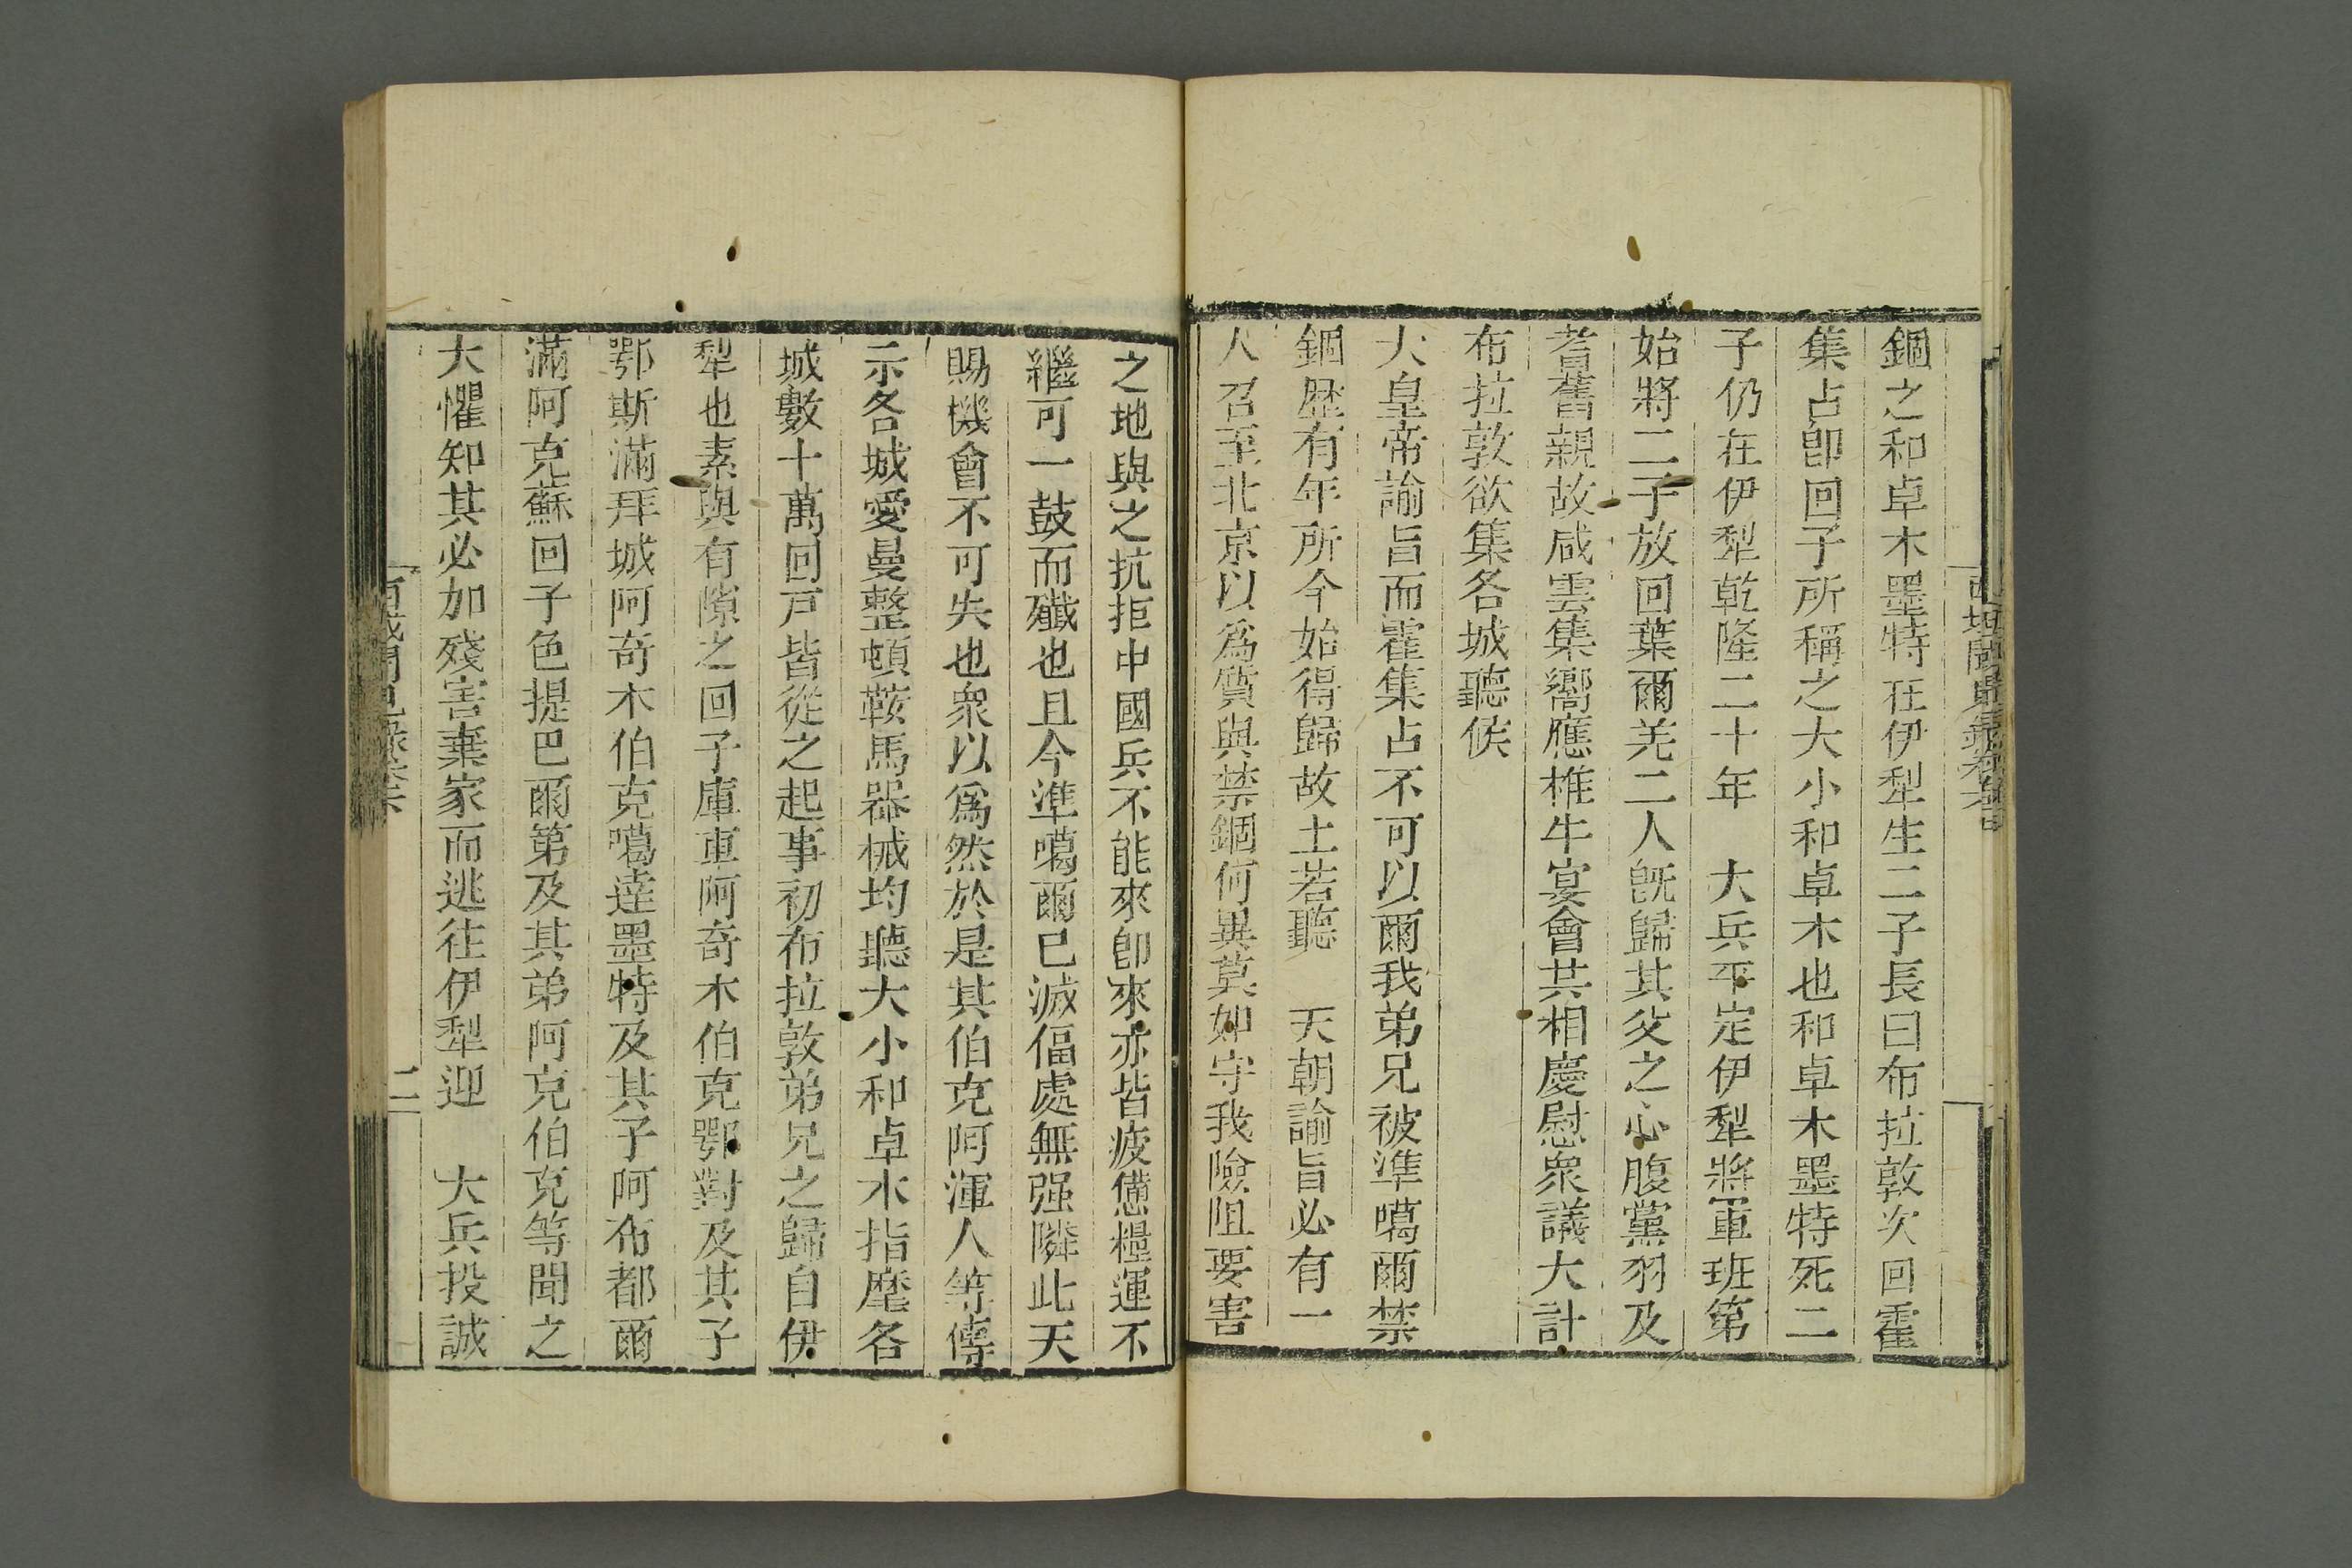 錮之和卓木墨特在伊犁生二子長曰布拉敦次回霍
集占卽回子所稱之大小和卓木也和卓木墨特死二
子仍在伊犁乾隆二十年　大兵平定伊犁將軍班第
始將二子放回葉爾羌二人旣歸其父之心腹黨羽及
耆舊親故咸雲集嚮應椎牛宴會共相慶慰衆議大計
布拉敦欲集各城聽候
大皇帝諭旨而霍集占不可以爾我弟兄被準噶爾禁
錮歷有年所今始得歸故土若聽　天朝諭旨必有一
人召至北京以爲質與禁錮何異莫如守我險阻要害
之地與之抗拒中國兵不能來卽來亦皆疲憊糧運不
繼可一鼓而殲也且今準噶爾已滅偪處無强隣此天
賜機會不可失也衆以爲然於是其伯克阿渾人等傳
示各城愛曼整頓鞍馬器械均聽大小和卓木指麾各
城數十萬回戸皆從之起事初布拉敦弟兄之歸自伊
犁也素與有隙之回子庫車阿奇木伯克鄂對及其子
鄂斯滿拜城阿奇木伯克噶達墨特及其子阿布都爾
滿阿克蘇回子色提巴爾第及其弟阿克伯克等聞之
大懼知其必加殘害棄家而逃往伊犁迎　大兵投誠
西域聞見錄卷六
二